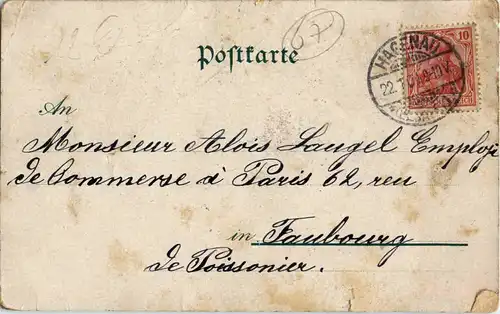 67
Postkarte
10
HAGENAU
22.
8-10V.
An
Monsieur Alois Laugel Employé
de Commerse à Paris 62, reu
in Faubourg
de Poissonier.